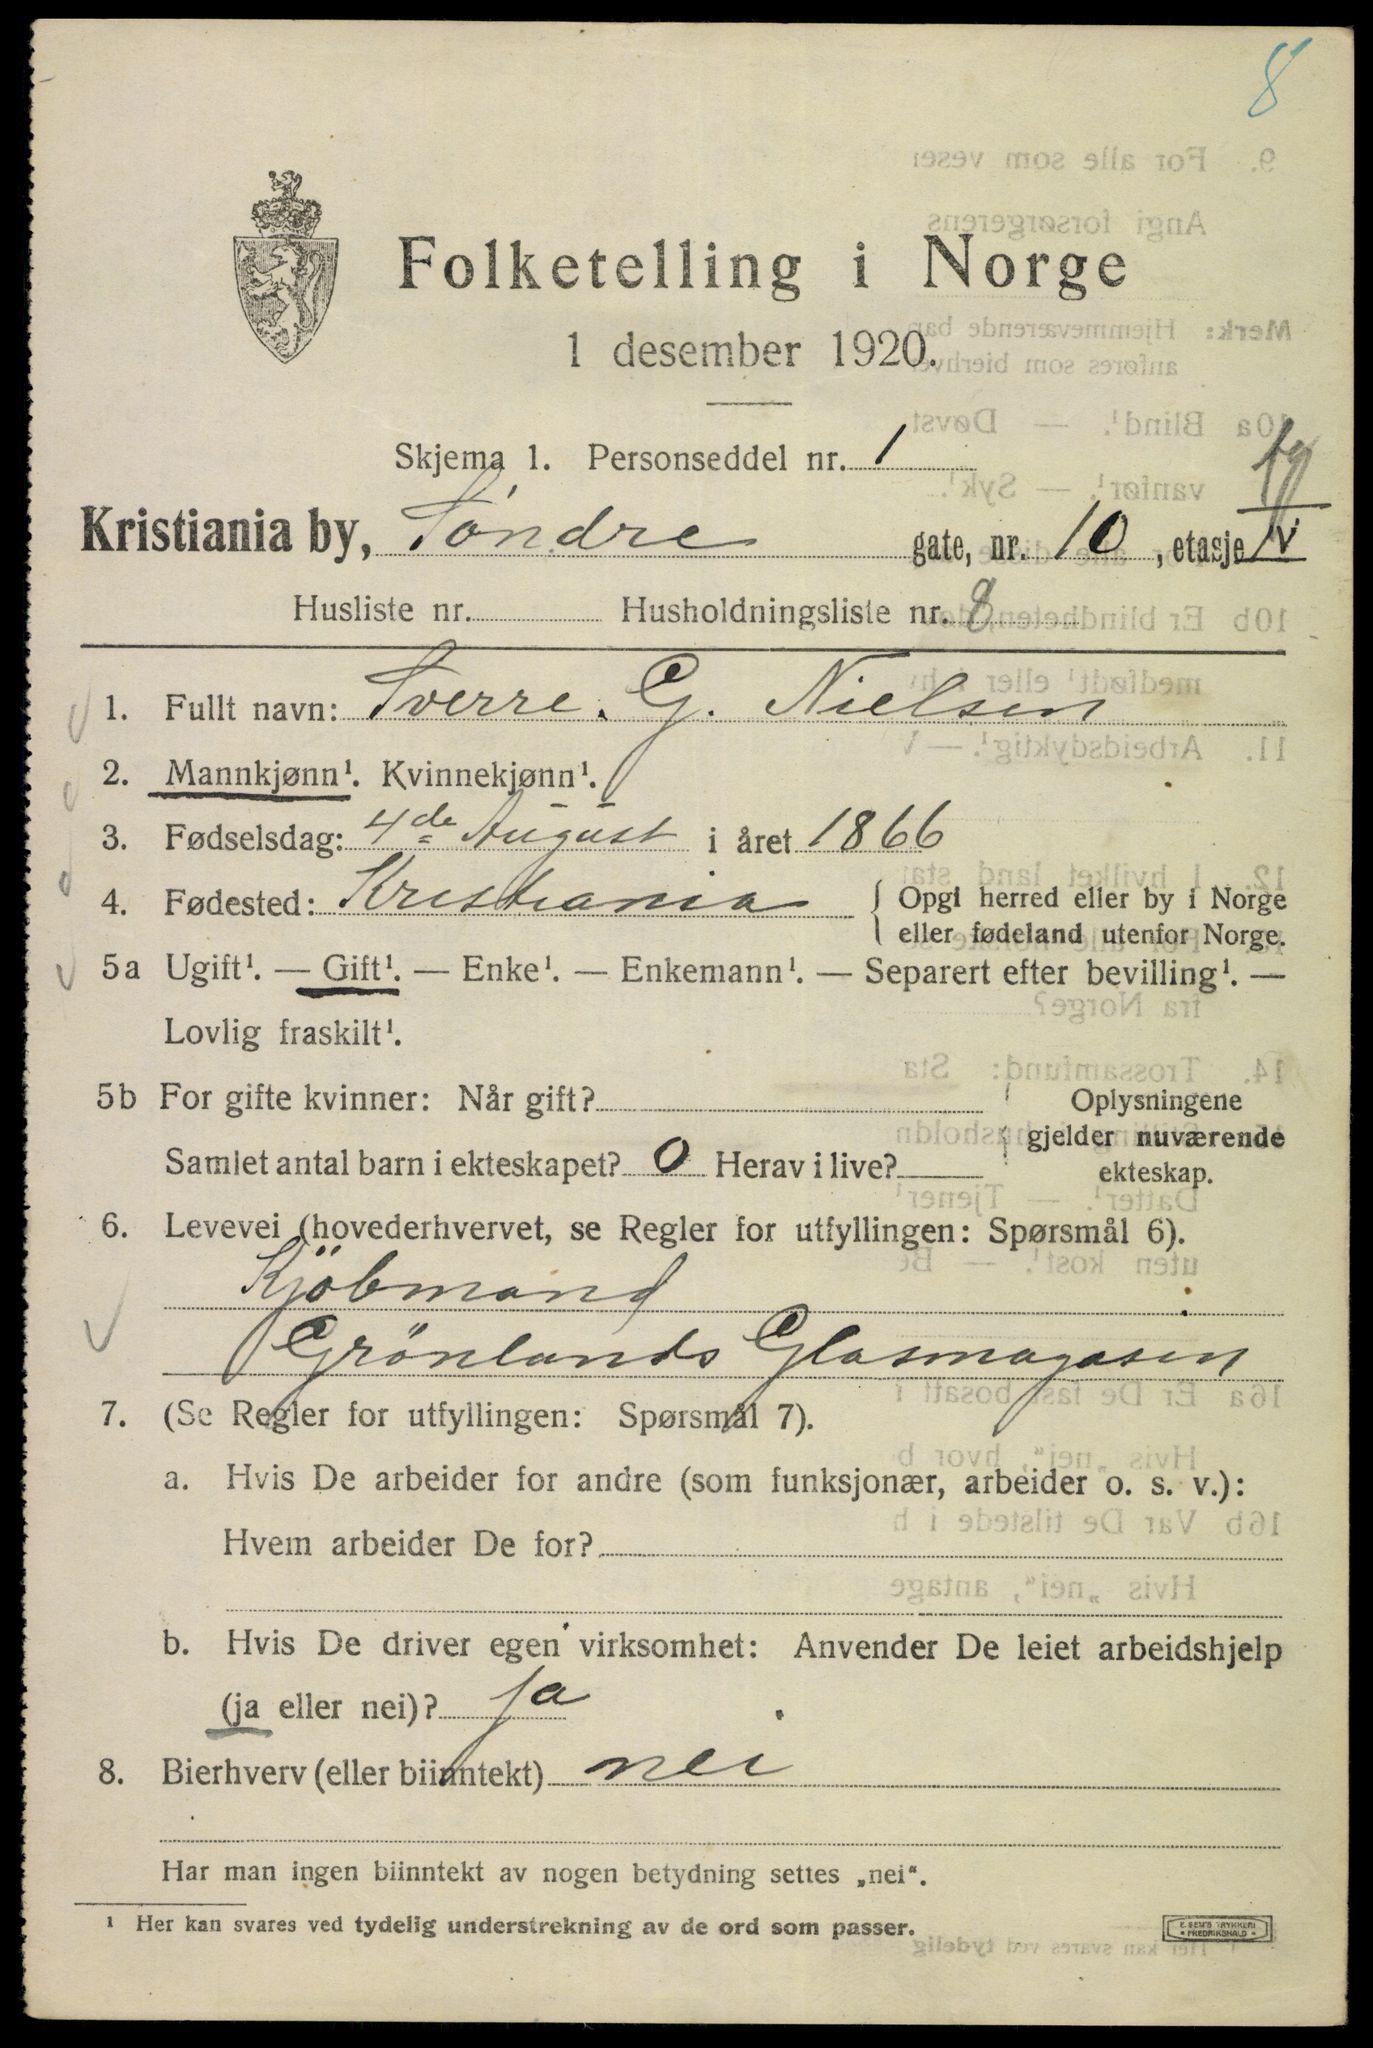 8
Folketelling i Norge
1 desember 1920.
Skjema 1. Personseddel nr. 1
Kristiania by, Söndre gate, nr. 10, etasje IV
Husliste nr. Husholdningsliste nr. 8
1. Fullt navn: Sverre. G. Nielsen
2. Mannkjønn¹. Kvinnekjønn¹.
3. Fødselsdag: 4de August i året 1866
4. Fødested: Kristiania { Opgi herred eller by i Norge
eller fødeland utenfor Norge.
5a Ugift¹. — Gift¹. — Enke¹. — Enkemann¹. — Separert efter bevilling¹. —
Lovlig fraskilt¹.
5b For gifte kvinner: Når gift? Oplysningene
gjelder nuværende
Samlet antal barn i ekteskapet? 0 Herav i live? ekteskap.
6. Levevei (hovederhvervet, se Regler for utfyllingen: Spørsmål 6).
Kjöbmand
Grönlands Glasmagasin
7. (Se Regler for utfyllingen: Spørsmål 7).
a. Hvis De arbeider for andre (som funksjonær, arbeider o. s. v.):
Hvem arbeider De for?
b. Hvis De driver egen virksomhet: Anvender De leiet arbeidshjelp
(ja eller nei)? ja
8. Bierhverv (eller biinntekt) nei
Har man ingen biinntekt av nogen betydning settes „nei“.
¹ Her kan svares ved tydelig understrekning av de ord som passer.
E. SEM'S TRYKKERI
FREDRIKSHALD